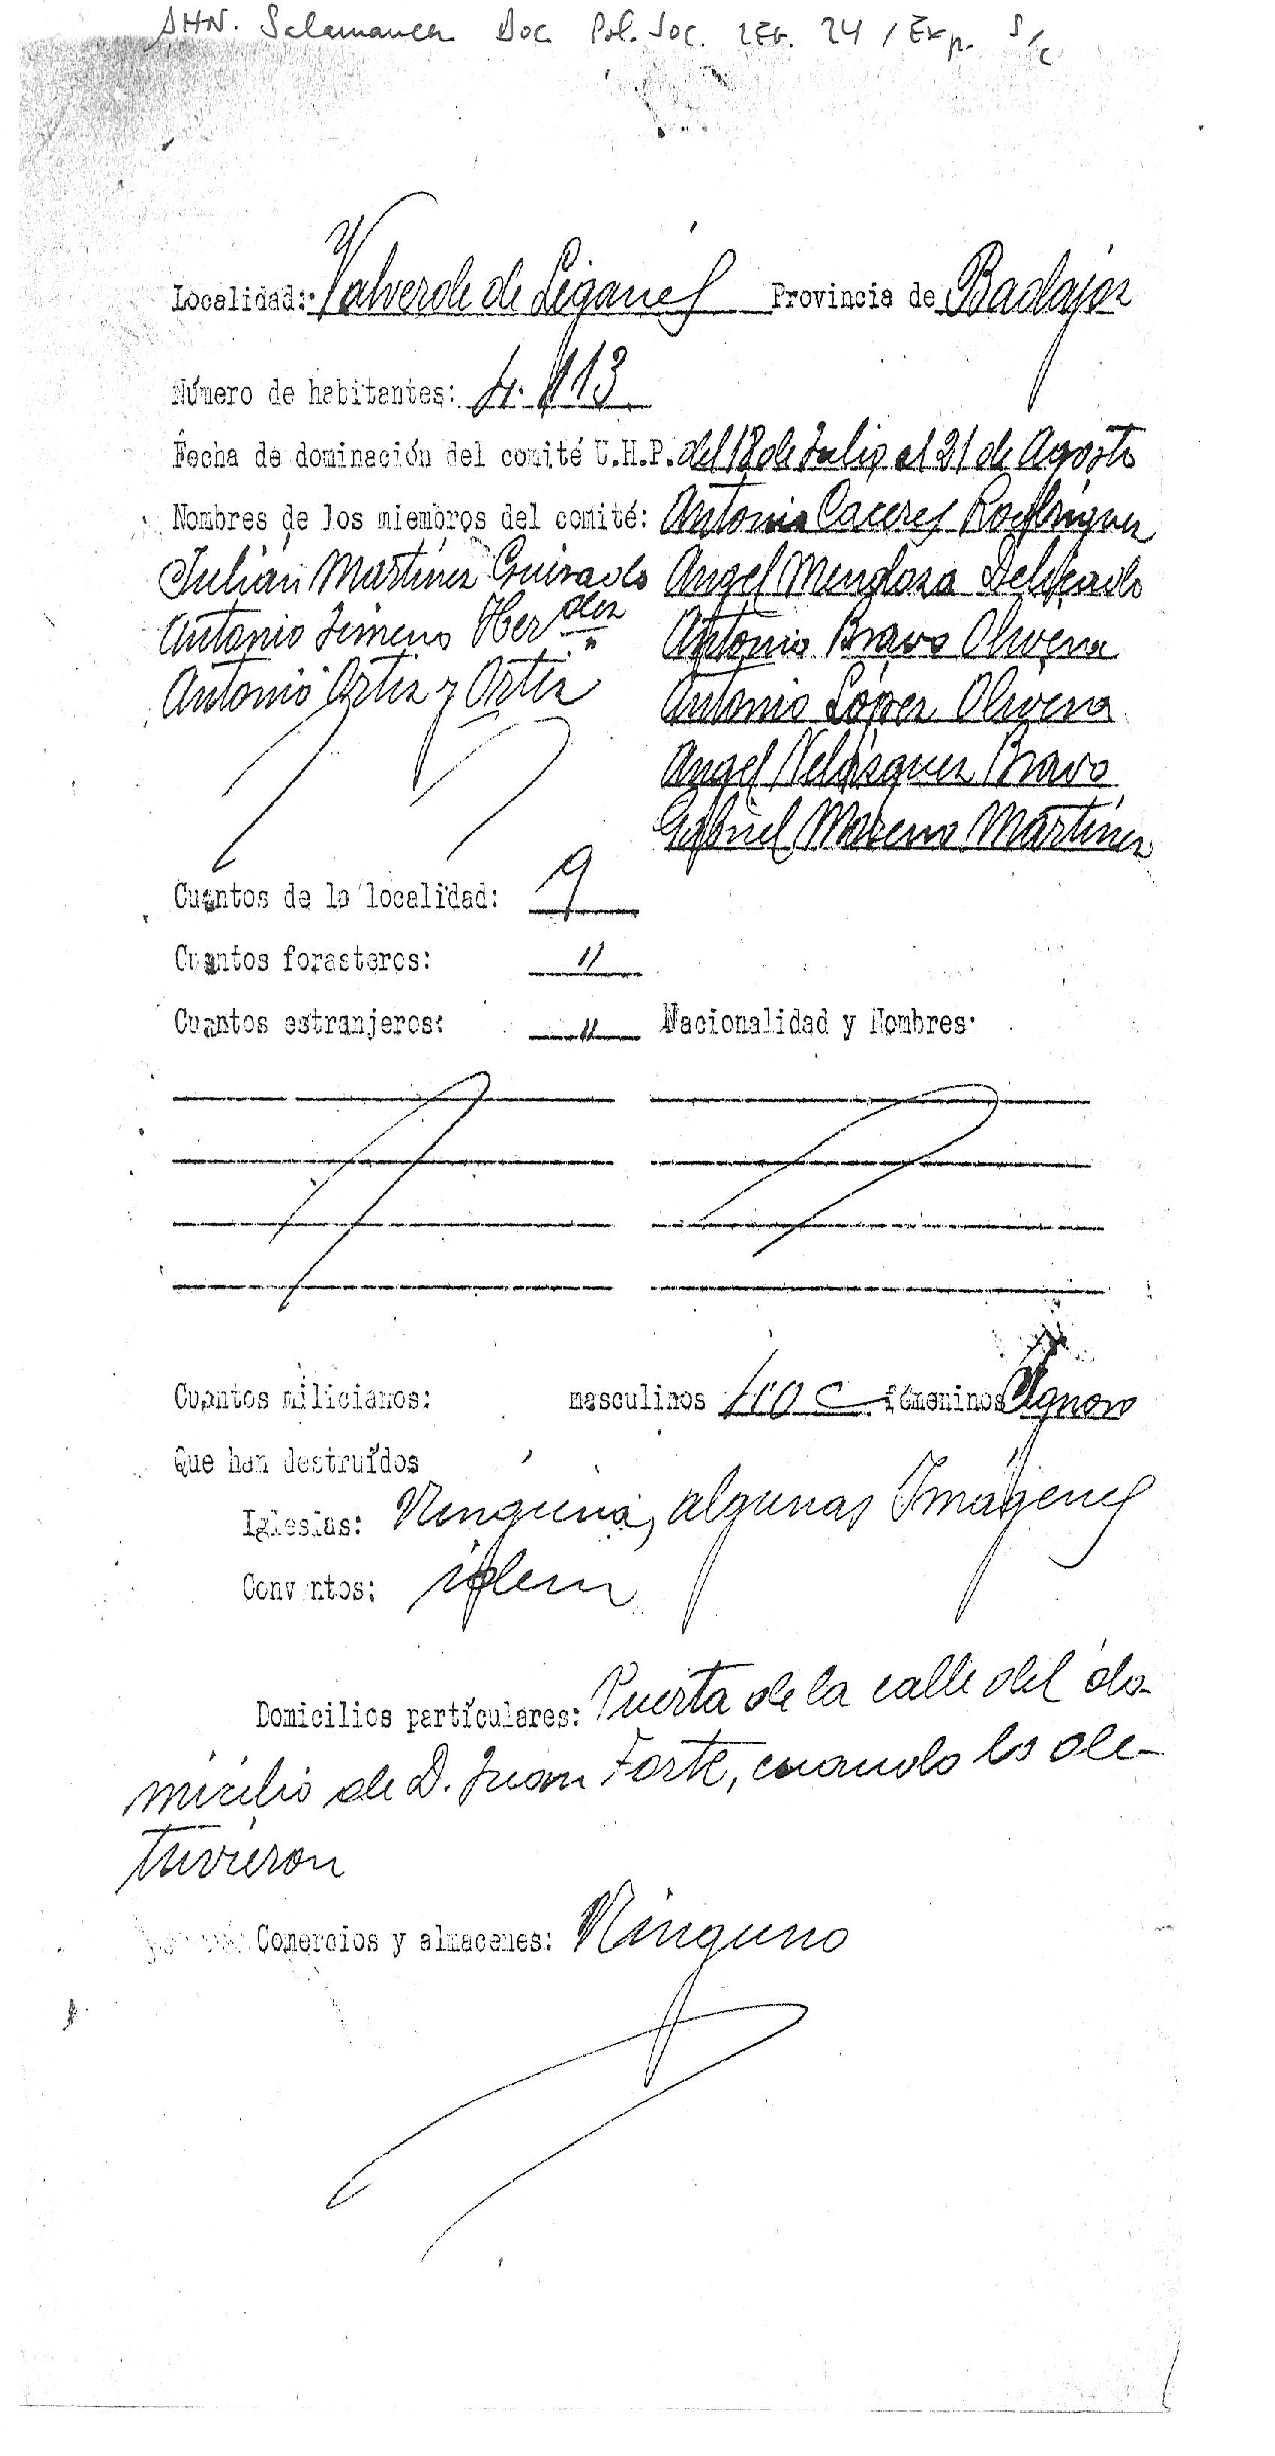 AHN. Salamanca Doc Pol. Soc. LEG. 24 / Exp. S/C
Localidad: Valverde de Leganés Provincia de Badajoz
Número de habitantes: 4.113
Fecha de dominación del comité U.H.P. del 18 de Julio al 21 de Agosto
Nombres de los miembros del comité: Antonio Caceres Rodriguez
Julián Martinez Guisado Angel Mendoza Delgado
Antonio Jimeno Herdez Antonio Bravo Olivera
Antonio Ortiz y Ortiz Antonio López Olivera
Angel Velásquez Bravo
Gabriel Moreno Martinez
Cuantos de la localidad: 9
Cuantos forasteros: "
Cuantos estranjeros: " Nacionalidad y Nombres
Cuantos milicianos: masculinos femeninos Ignoro
Que han destruídos
Iglesias: Ninguna, algunas Imágenes
Conventos: idem
Domicilios partículares: Puerta de la calle del do-
micilio de D. Juan Forte, cuando lo de-
tuvieron
Comercios y almacenes: Ninguno